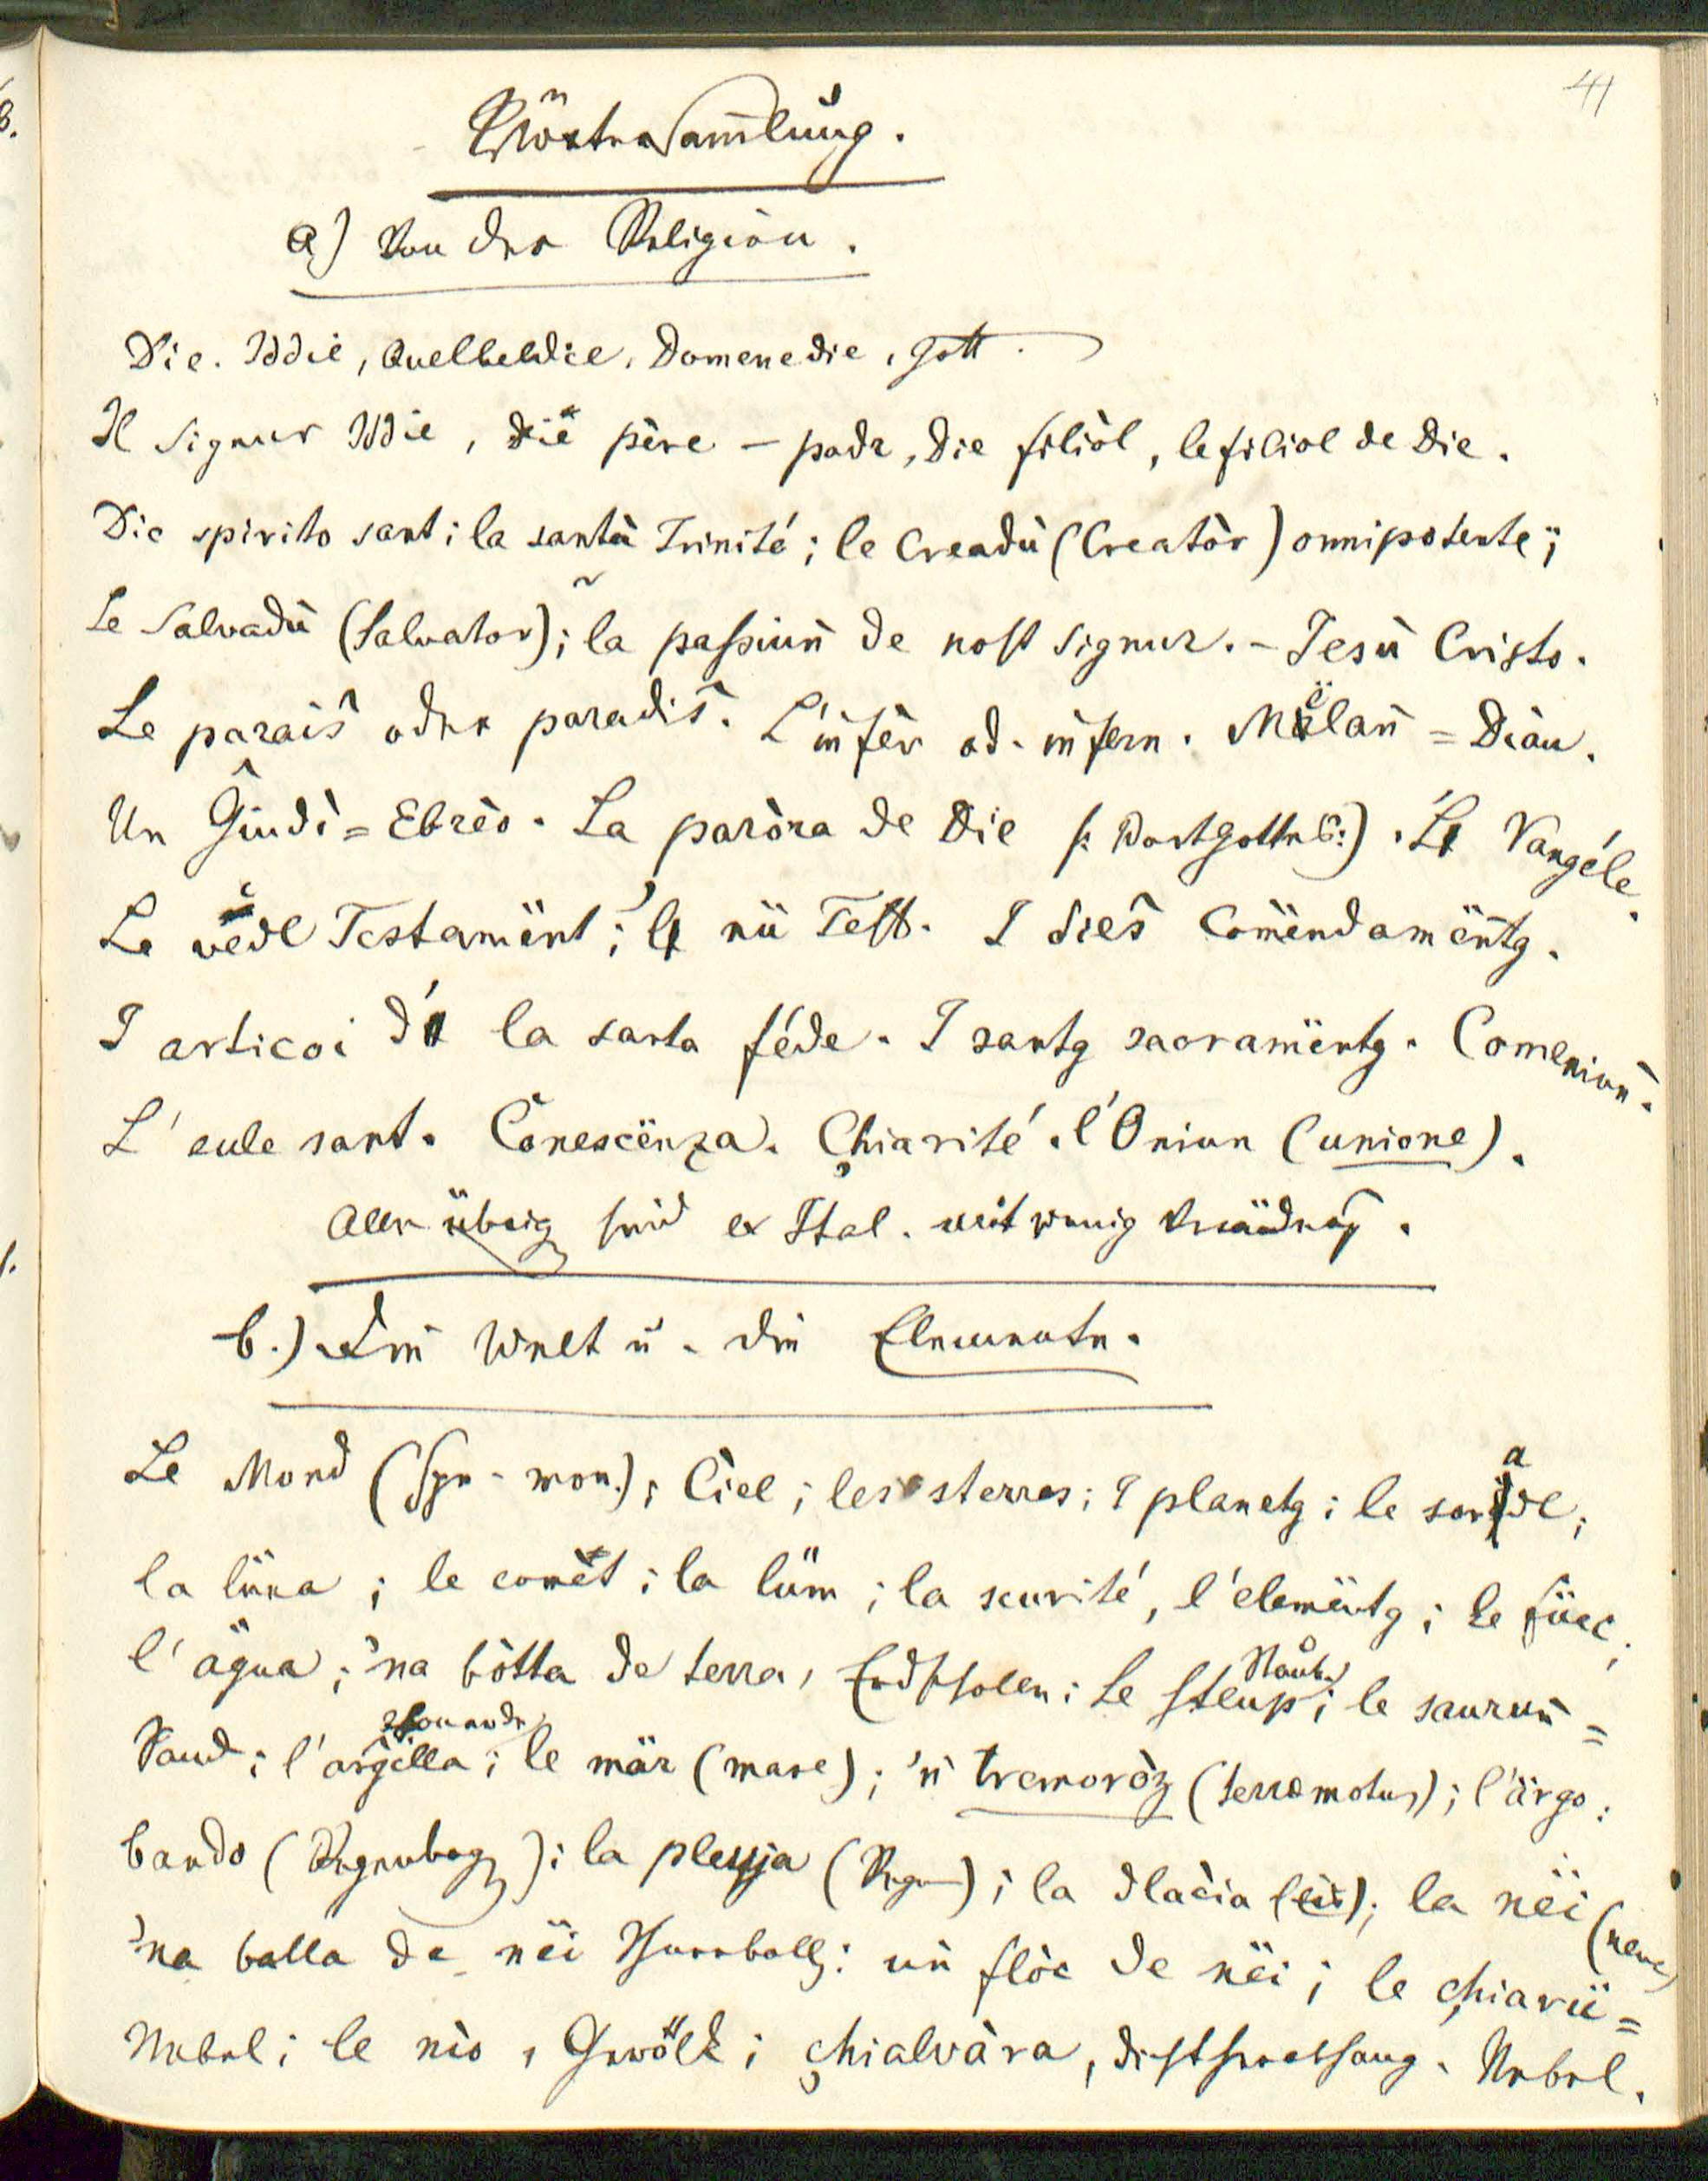 41
Wörtersam̄lung.
a) Von der Religion.
Die. Iddie, Quelbeldie, Domenedie, Gott.
Il Signur Iddie, Die père – padr, Die filiòl, le filiol de Die.
Die spirito sant; la santa Trinité; le Creadù (Creatòr) onnipotente;
Le Salvadù (Salvator); la passiuñ de nost Signur. – Jesù Cristo.
Le paraiŝ oder paradiŝ. L'infèr od. infern. Mëlan = Diàu.
Un Ĝiudì = Ebrèo. La paròra de Die (: Wort Gottes :). 'L Vangéle.
Le vedl Testamënt; 'l nü Test. I dieŝ Comëndamëntg.
I articoi d' la santa féde. I santg sacramëntg. Comeniuñ.
L' eule sant. Conescënza. Chiarité. l'Oniun (unione).
Alle übrig sind ex Ital. mit wenig Veränderg.
b.) Die Welt u. die Elemente.
Le Mond (Syn. mon.); Ciel; les sterres; I planetg; le soradl;
la lüna; le comèt; la lüm; la scurité, l'elemëntg; le füec;
l' ägua; 'na bòtta de terra, Erdschollen; Le Steup; Staub le saurun =
Sand; l'argilla; Thonerde le mär (mare); 'n tremoròz (terræmotus); l'ärgo:
bando (Regenbog); la pleuja (Regen); la dlacia (Eis); la nëi (neve)
'na balla de nëi Schneeball; un flòc de nëi; le chiarü =
Nebel; le nìo, Gewölk; chialvàra, Nebel.